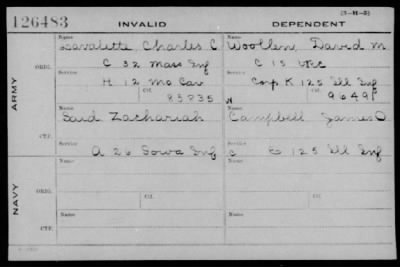 (3-M-3)
126483 INVALID DEPENDENT
ARMY
ORIG.
Name
Lavalette, Charles C.
Service
C 32 Mass Inf
H 12 Mo Cav
Ctf.
85835
Name
Woollen, David M
Service
C 15 VRC
Corp. K 125 Ill Inf
W Ctf.
9649
CTF.
Name
Said Zachariah
Service
A 26 Iowa Inf
Name
Campbell James O
Service
C E 125 Ill Inf
NAVY
ORIG.
Name
Ctf.
Name
Ctf.
CTF.
Name
Name